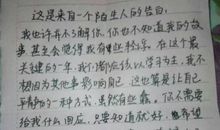 这是来自一个陌生人的告白。
我也许并不了解你，你也不知道我的故
事甚至会觉得我有些轻浮。在这个最
关键的一年，我不渴你以学习为主，我不
想因为其他事影响自己，这也算是让自己
平静的一种方式，虽然有些蠢，你不需要
给我什么回应，只要知道就好，也希望